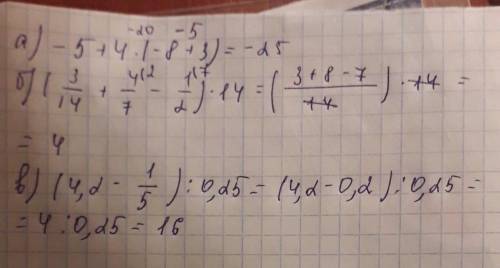 -20 -5
а) - 5 + 4 · (- 8 + 3) = - 25
б) ( 3/14 + 4/7 (2 - 1/2 (7 ) · 14 = ( (3 + 8 - 7)/14 ) · 14 =
= 4
в) (4,2 - 1/5 ) : 0,25 = (4,2 - 0,2) : 0,25 =
= 4 : 0,25 = 16